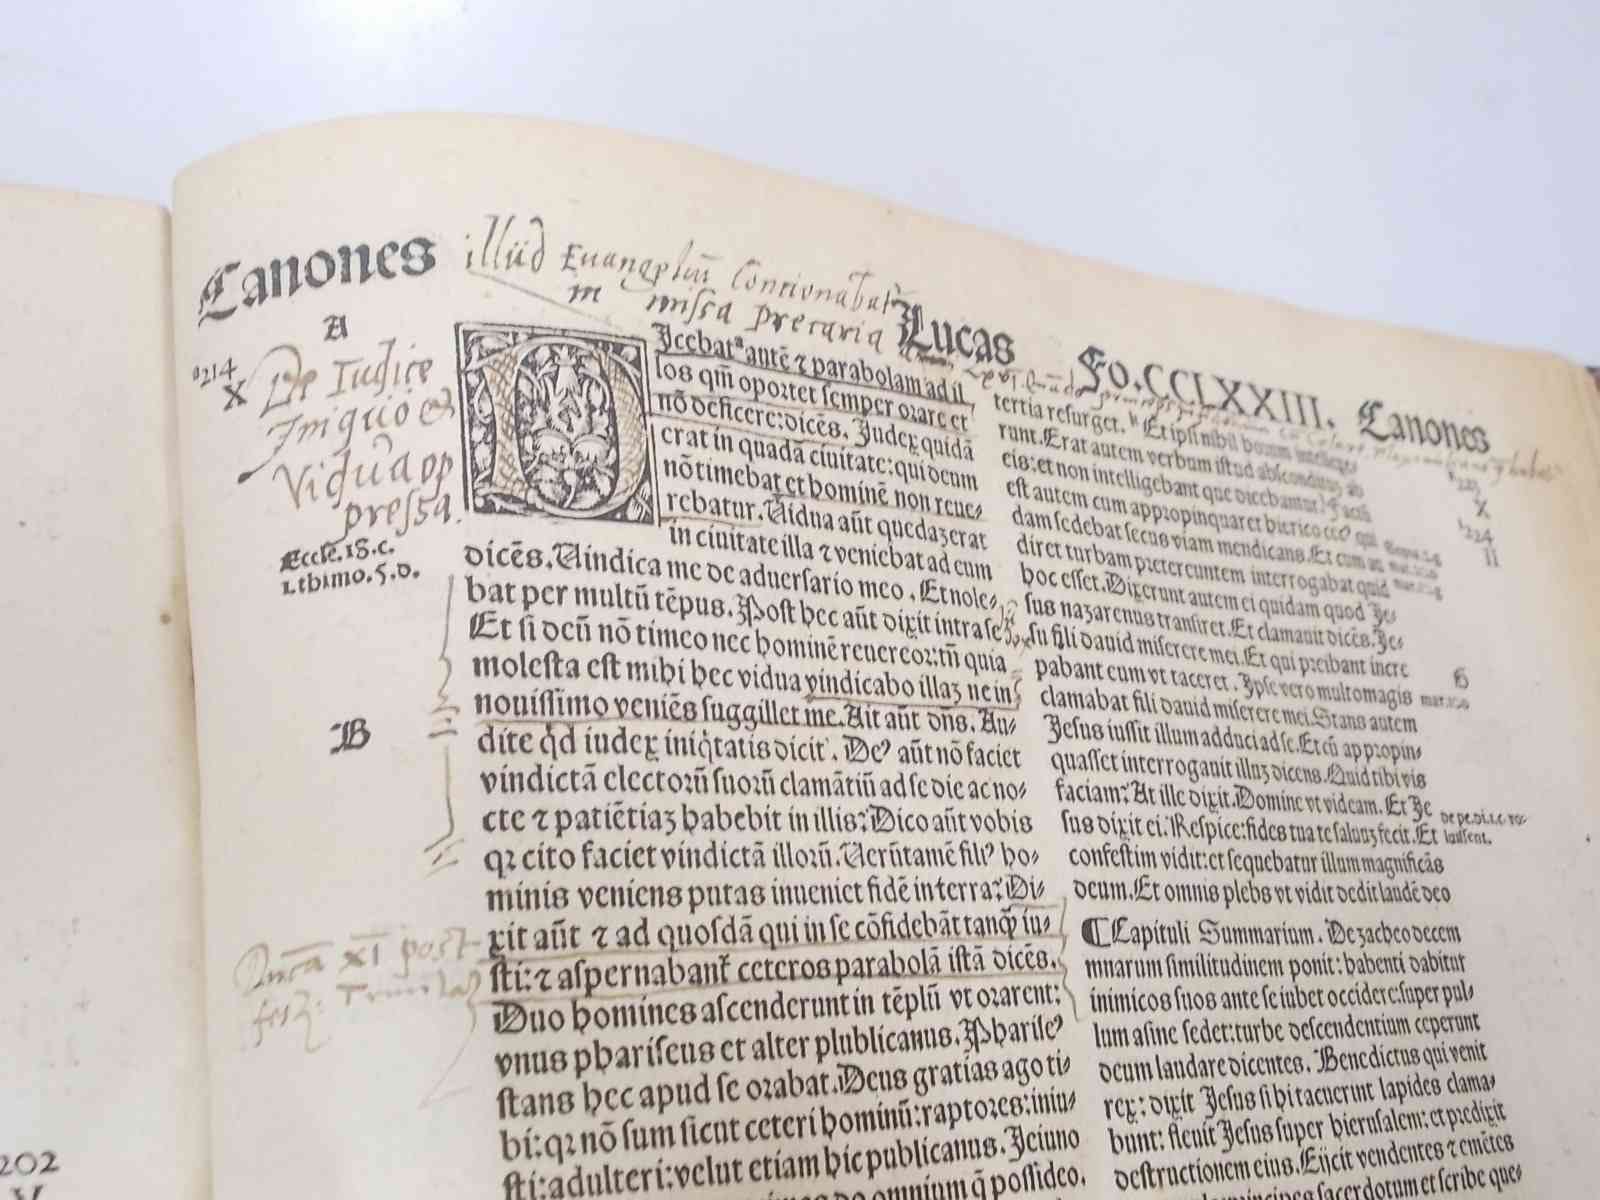 Canones
illud Euangeliū Concionabat
in missa precaria
Lucas
Fo.CCLXXIII.
Canones
A
214
X
De Iudice
Iniquo et
Viduā op
pressa.
Eccle.18.c.
1.thimo.5.d.
B
post
DIcebatª antē ⁊ parabolam ad il
los qm̄ oportet semper orare et
nō deficere: dicēs. Judex quidā
erat in quadā ciuitate: qui deum
nō timebat et hominē non reue⸗
rebatur. Uidua aūt quedaꝫ erat
in ciuitate illa ⁊ veniebat ad eum
dicēs. Uindica me de aduersario meo. Et nole⸗
bat per multū tēpus. Post hec aūt dixit intra se
Et si deū nō timeo nec hominē reuereor: tn̄ quia
molesta est mihi hec vidua vindicabo illaꝫ ne in
nouissimo veniēs suggillet me. Ait aūt dn̄s. Au⸗
dite qd̓ iudex iniq̇tatis dicit. Deꝰ aūt nō faciet
vindictā electorū suorū clamātiū ad se die ac no⸗
cte ⁊ patiētiaꝫ habebit in illis? Dico aūt vobis
qꝛ cito faciet vindictā illorū. Uerūtamē filiꝰ ho⸗
minis veniens putas inueniet fidē in terra? Di⸗
xit aūt ⁊ ad quosdā qui in se cōfidebāt tanq̄ȝ iu⸗
sti: ⁊ aspernabant̄ ceteros parabolā istā dicēs.
Duo homines ascenderunt in tēplū vt orarent:
vnus phariseus et alter plublicanus. Phariseꝰ
stans hec apud se orabat. Deus gratias ago ti⸗
bi: qꝛ nō sum sicut ceteri hominū: raptores: iniu⸗
sti: adulteri: velut etiam hic publicanus. Jeiuno
omnium q̄ possideo.
tertia resurget. Et ipsi nihil horum intellexe
runt. Erat autem verbum istud absconditū ab
eis: et non intelligebant que dicebantur. Factū
est autem cum appropinquaret hierico
dam sedebat secus viam mendicans. Et cum
diret turbam pretereuntem interrogabat quid
hoc esset. Dixerunt autem ei quidam quod Je⸗
sus nazarenus transiret. Et clamauit dicēs. Je⸗
su fili dauid miserere mei. Et qui preibant incre
pabant eum vt taceret. Ipse vero multo magis
clamabat fili dauid miserere mei. Stans autem
Jesus iussit illum adduci ad se. Et cū appropin⸗
quasset interrogauit illuꝫ dicens. Quid tibi vis
faciam? At ille dixit. Domine vt videam. Et Je
sus dixit ei. Respice: fides tua te saluuꝫ fecit. Et
confestim vidit: et sequebatur illum magnificās
deum. Et omnis plebs vt vidit dedit laudē deo
¶ Capituli Summarium. De zacheo decem
mnarum similitudinem ponit: habenti dabitur
inimicos suos ante se iubet occidere: super pul⸗
lum asine sedet: turbe descendentium ceperunt
deum laudare dicentes. Benedictus qui venit
rex: dixit Jesus si hi tacuerunt lapides clama⸗
bunt: fleuit Jesus super hierusalem: et predixit
destructionem eius. Eijcit vendentes ⁊ emētes
principes sacerdotum et scribe que⸗
X
224
II
G
202